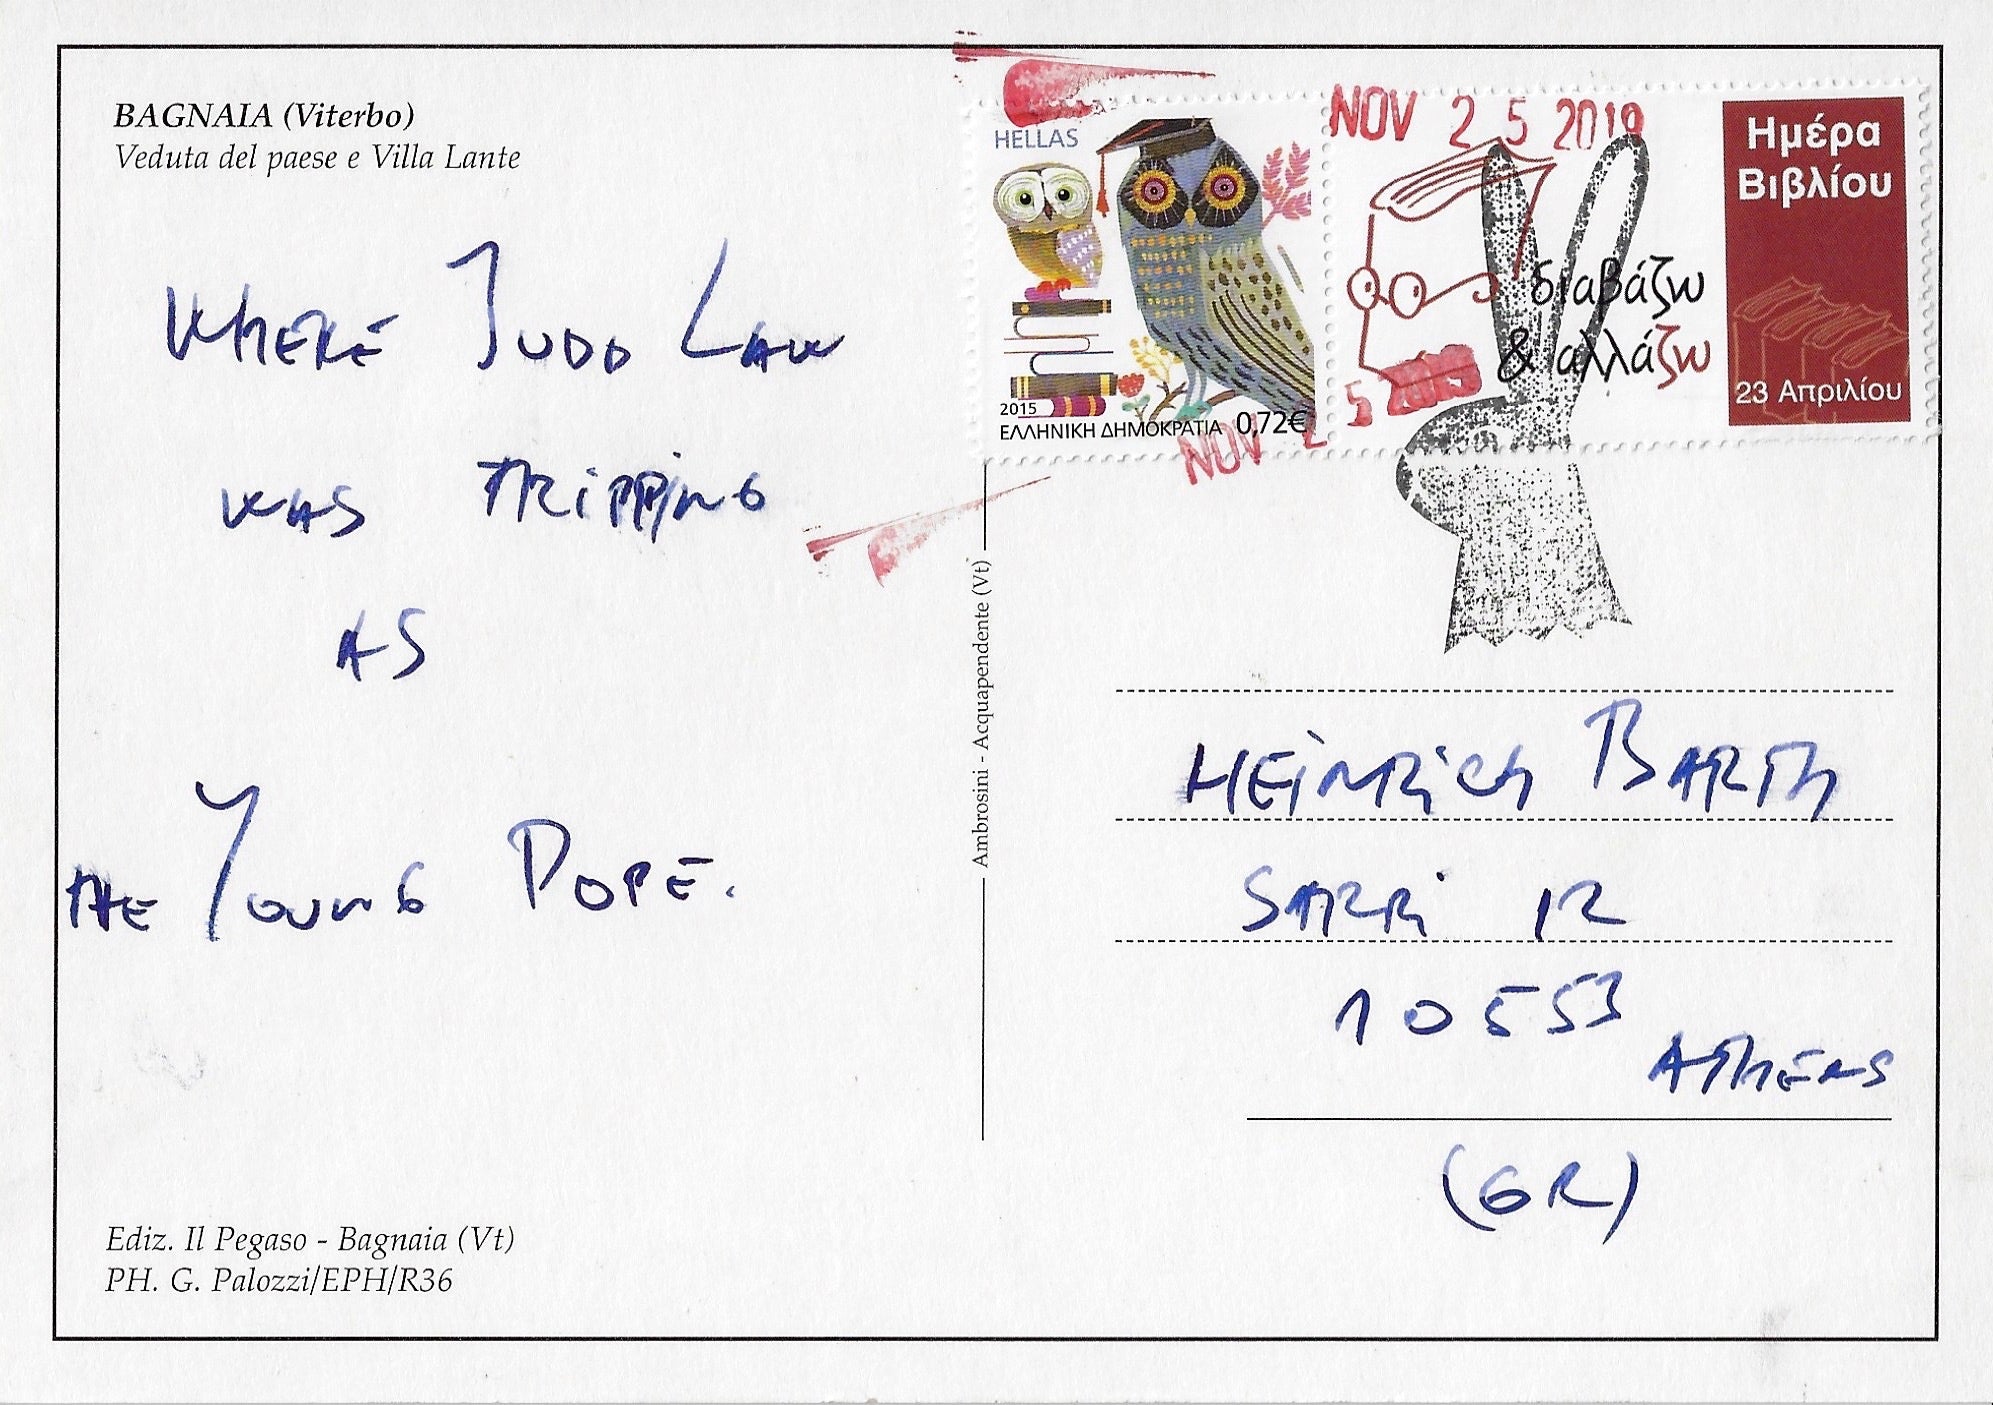 BAGNAIA (Viterbo)
Veduta del paese e Villa Lante
WHERE JUDO LAW
WAS TRIPPING
AS
THE YOUNG POPE.
Ediz. Il Pegaso - Bagnaia (Vt)
PH. G. Palozzi/EPH/R36
Ambrosini - Acquapendente (Vt)
HELLAS
2015
ΕΛΛΗΝΙΚΗ ΔΗΜΟΚΡΑΤΙΑ 0,72€
NOV 25 2019
διαβάζω
& αλλάζω
Ημέρα
Βιβλίου
23 Απριλίου
NOV 25 2019
HEINRICH BARTH
SARRI 12
10553
ATHENS
(GR)